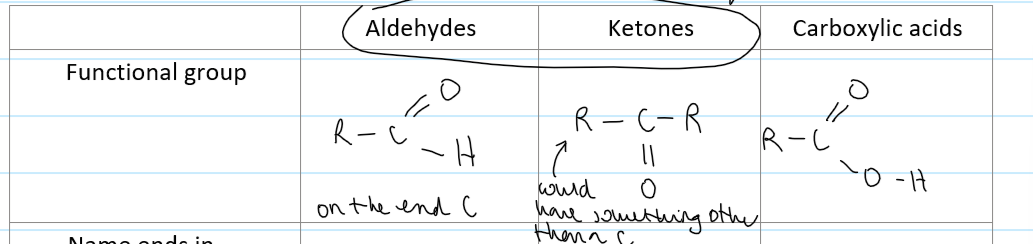 Aldehydes Ketones Carboxylic acids
Functional group
O
R - C
- H
on the end C
R - C - R
||
O
would
have something other
than C
O
R - C
O - H
Name ends in